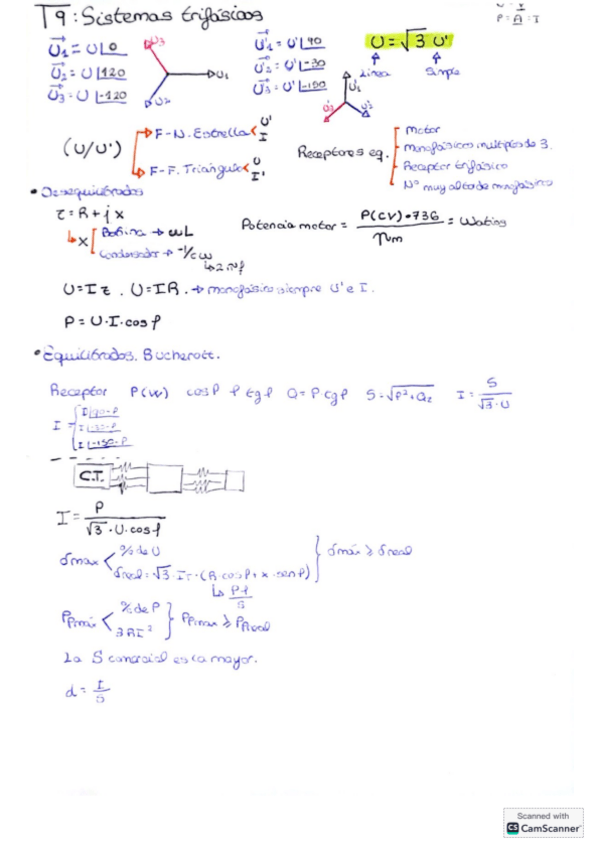 T9: Sistemas trifásicos
P = A = I
U₁ = U∟0
U₂ = U∟120
U₃ = U∟-120
U₃
U₁
U₂
U'₁ = U'∟90
U'₂ = U'∟-30
U'₃ = U'∟-150
U'₁
U = √3 U'
Línea
Simple
(U/U')
F-N. Estrella
U'
I
F-F. Triángulo
U
I'
Receptores eq.
motor
Monofásicos multiplos de 3.
Receptor trifásico
Nº muy alto de monofásicos
• Desequilibrados
z = R + j x
x
Bobina → ωL
Condensador → -1/c ω
↳ 2πf
Potencia motor = P(CV)·736 / ηm = Watios
U = I z . U = I R. → monofásico siempre U' e I.
P = U·I·cos φ
• Equilibrados. Boucherot.
Receptor P(W) cos φ φ tg φ Q = P tg φ S = √P²+Q² I = S / √3·U
I =
I∟90-φ
I∟-30-φ
I∟-150-φ
C.T.
I = P / √3·U·cos φ
δmax
% de U
δreal = √3·I·(R·cos φ + x·sen φ)
δmáx ≥ δreal
↳ ρ·l / S
Ppmáx
% de P
3RI²
Ppmax ≥ PReal
La S comercial es la mayor.
d = I / S
Scanned with
CS CamScanner